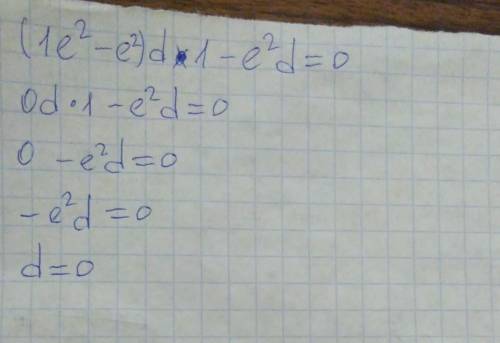 (1e²-e²)d·1-e²d=0
0d·1-e²d=0
0-e²d=0
-e²d=0
d=0